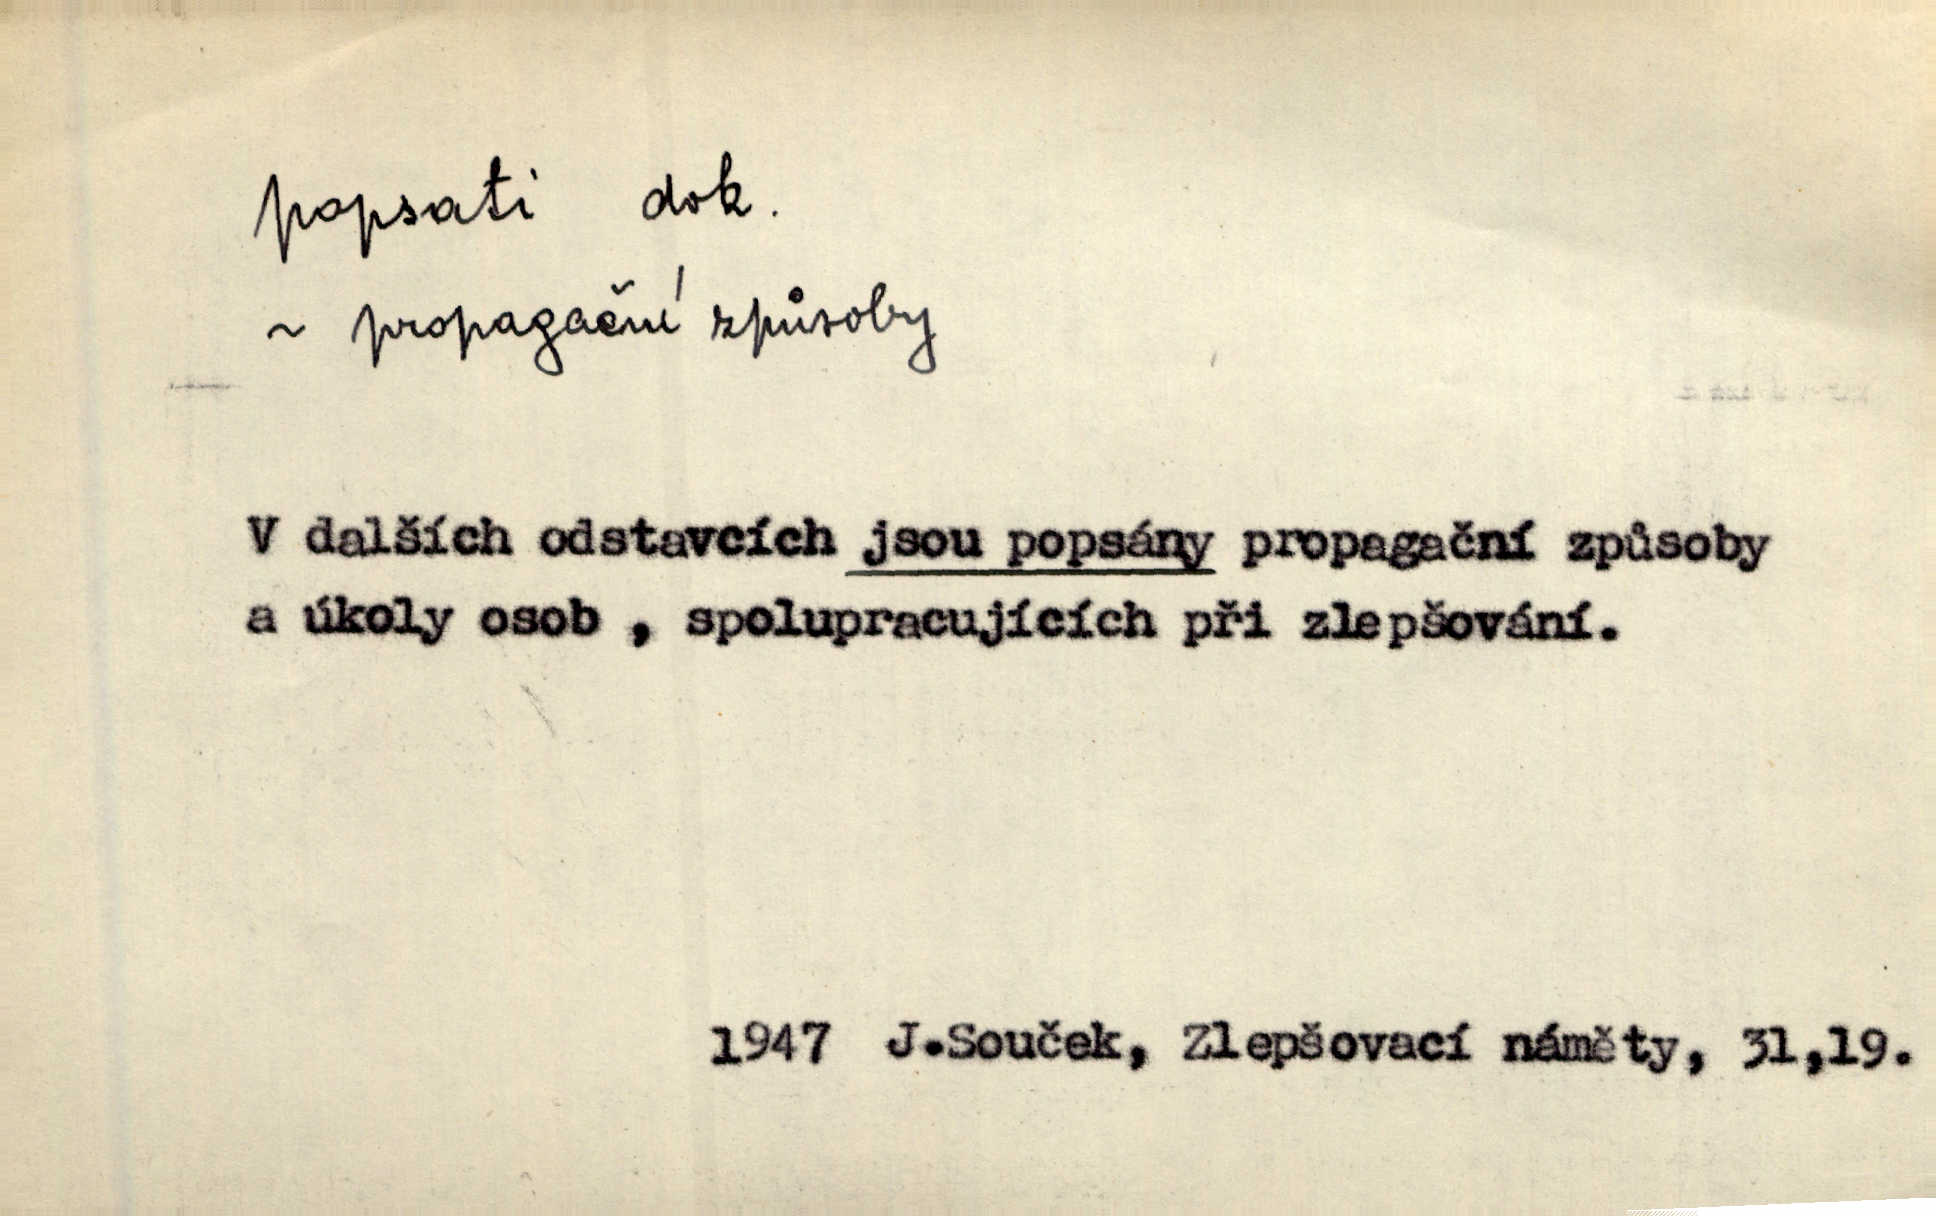 popsati dok.
~ propagační způsoby
V dalších odstavcích jsou popsány propagační způsoby
a úkoly osob , spolupracujících při zlepšování.
1947 J.Souček, Zlepšovací náměty, 31,19.